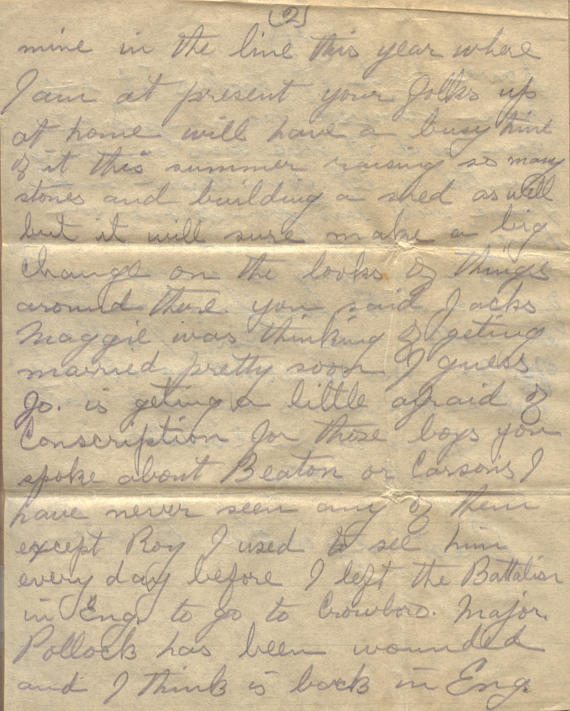 (2)
mine in the line this year where
I am at present your folks up
at home will have a busy time
of it this summer raising so many
stones and building a shed as well
but it will sure make a big
change on the looks of things
around there you said Jacks
Maggie was thinking of geting
married pretty soon I guess
Jo. is geting a little afraid of
Conscription for those boys you
spoke about Beaton or Carsons I
have never seen any of them
except Roy I used to see him
every day before I left the Battalion
in Eng. to go to Crowboro. Major.
Pollock has been wounded
and I think is back in Eng.